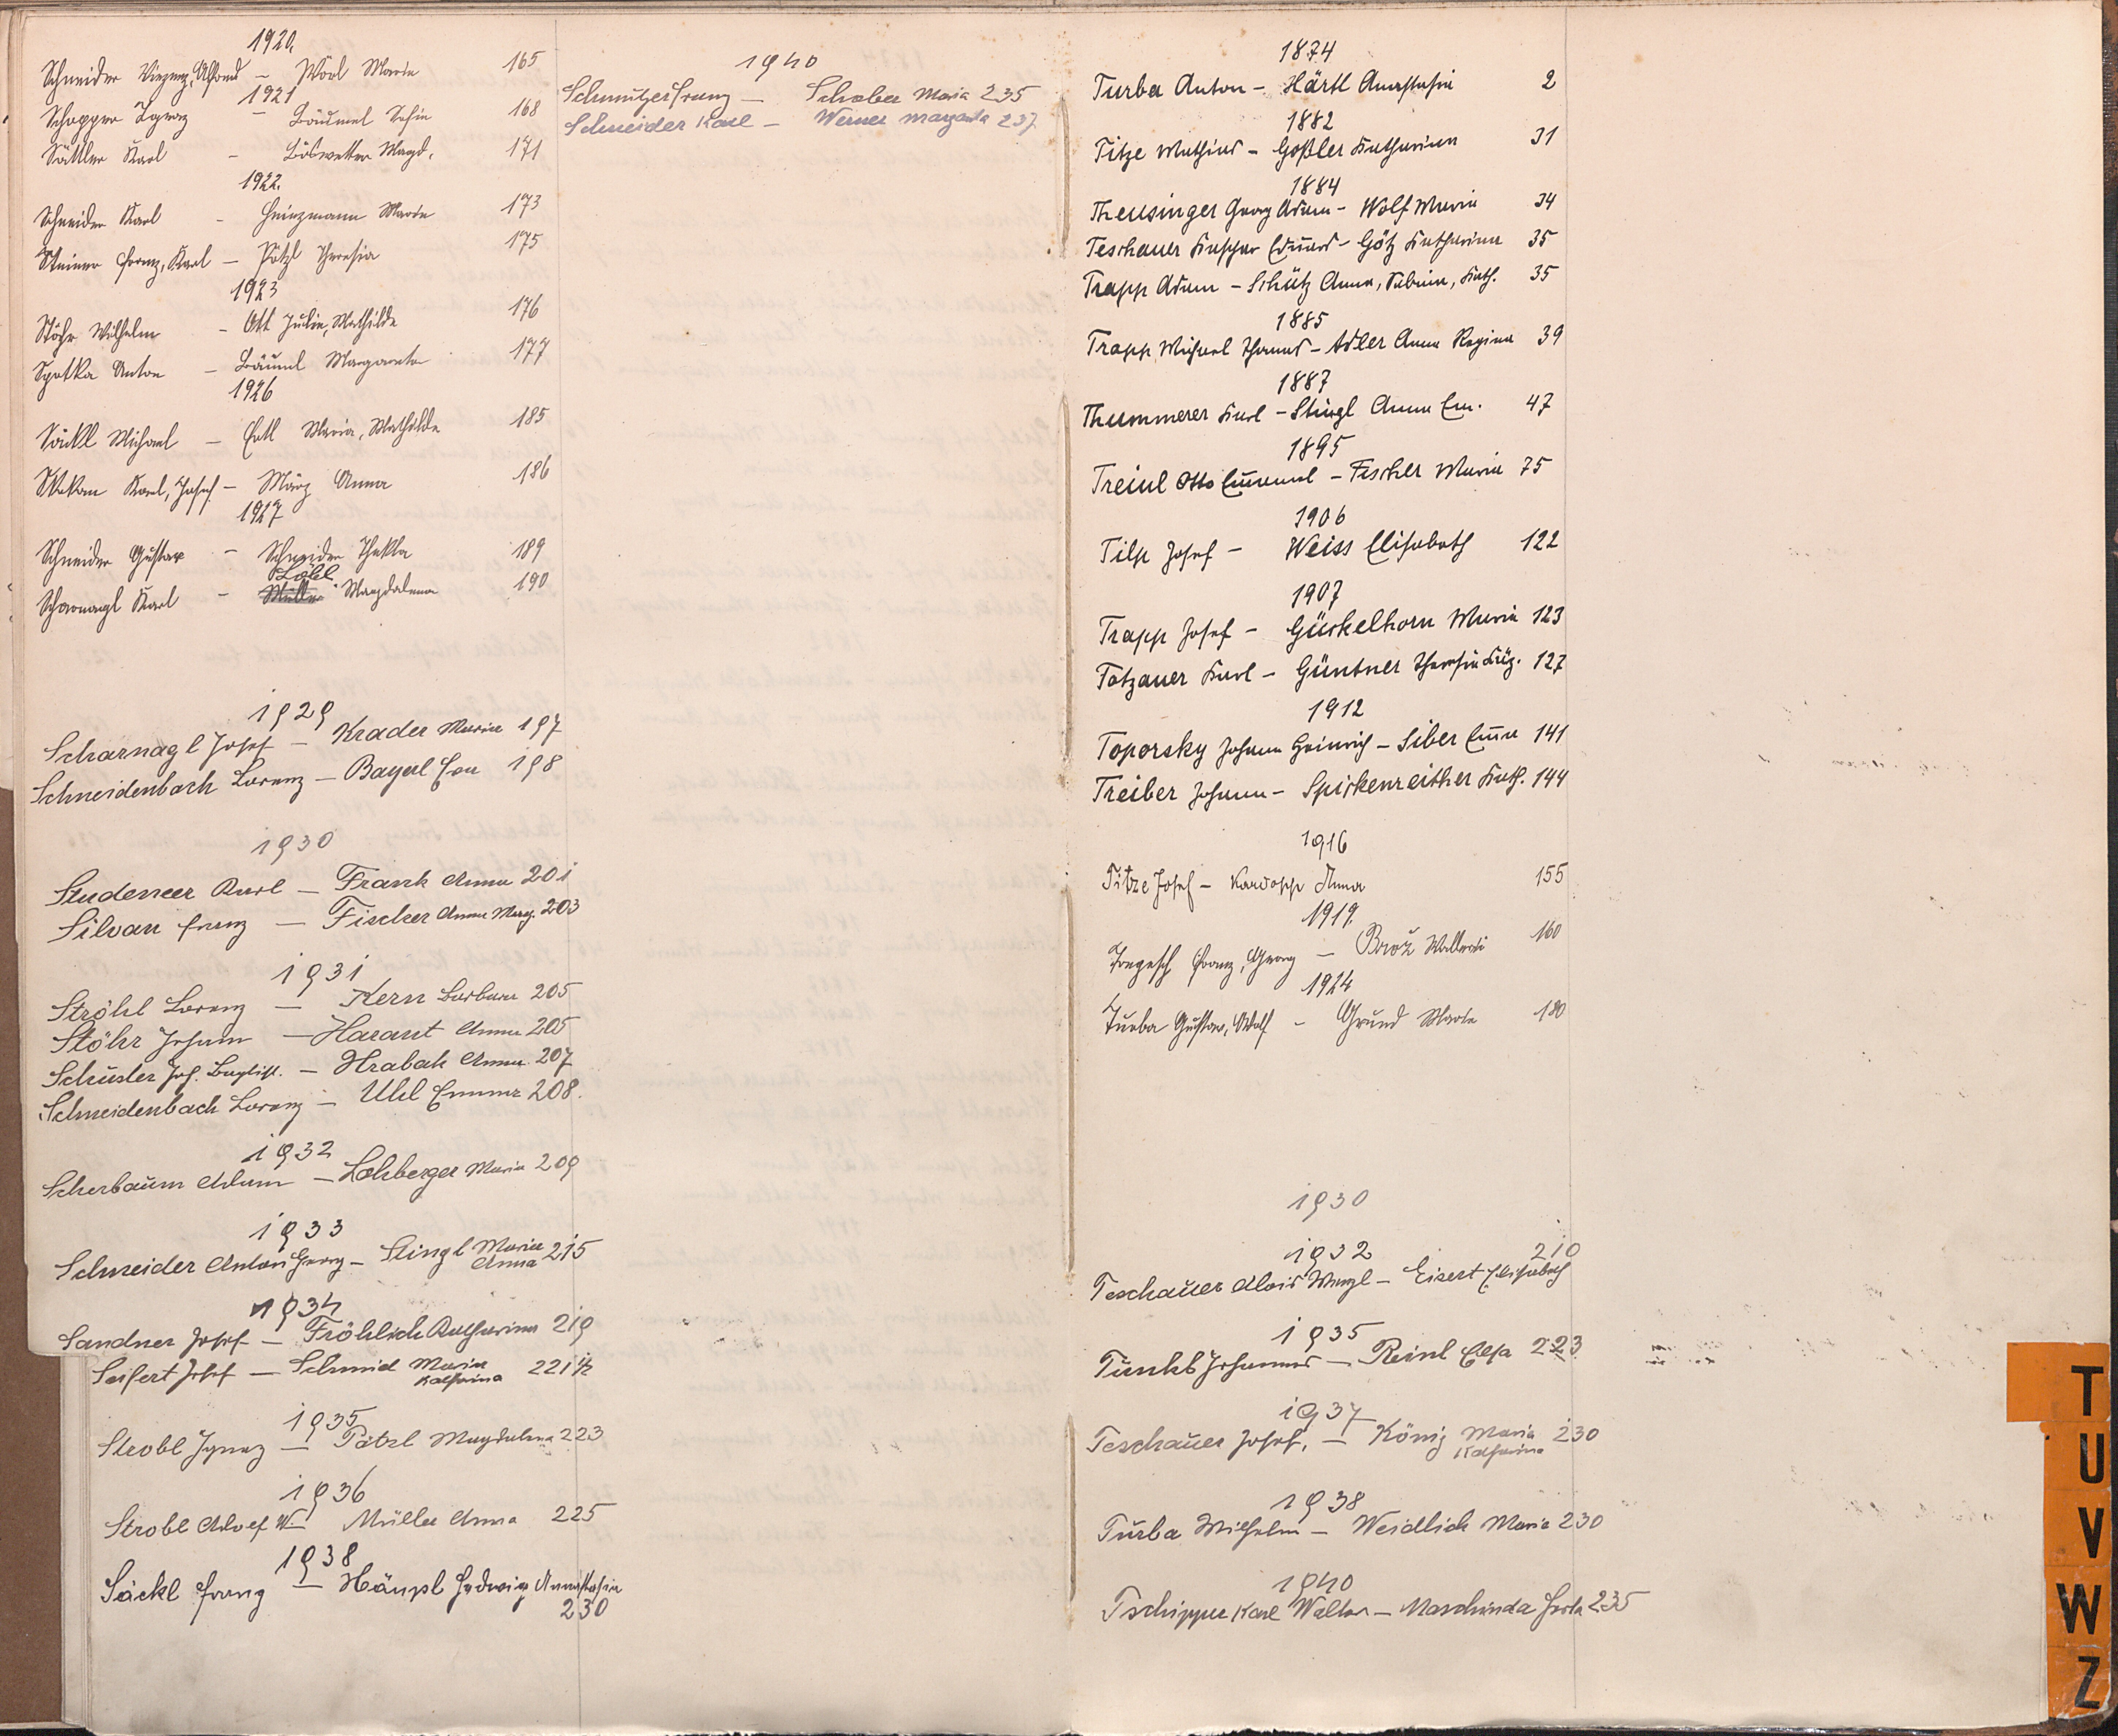 1920.
Schneider Vinzenz, Alfons – Wörl Maria 165
1921
Schopper Ignaz – Bäuml Sofie 168
Sättler Karl – Böswetter Magd. 171
1922.
Schneider Karl – Heinzmann Marie 173
Steiner Franz, Karl – Pötzl Theresia 175
1923
Stöhr Wilhelm – Ott Julie, Mathilde 176
Spotka Anton – Bäuml Margareta 177
1926
Säckl Michael – Ertl Maria, Mathilde 185
Karl, Josef – März Anna 186
1927
Schneider Gustav – Schneider Thekla 189
Löbl
Scharnagl Karl – Müller Magdalena 190
1929
Scharnagl Josef – Krader Maria 197
Schneidenbach Lorenz – Bayerl Eva 198
1930
Studeneer Karl – Frank Anna 201
Silvan Franz – Fischer Anna Marg. 203
1931
Ströhl Lorenz – Kern Barbara 205
Stöhr Johann – Harant Anna 205
Schuster Joh. Baptist. – Hrabak Anna 207
Schneidenbach Lorenz – Uhl Emma 208.
1932
Scherbaum Adam – Lohberger Maria 209
1933
Schneider Anton Georg – Stingl Maria Anna 215
1934
Sandner Josef – Fröhlich Katharina 219
Seifert Josef – Schmid Maria Katharina 221
1935
Strobl Ignaz – Pötzl Magdalena 223
1936
Strobl Adolf W. – Müller Anna 225
1938
Säckl Franz – Häupl Hedwig Annastasia
230
1940
Schmutzer Franz – Schober Maria 235
Schneider Karl – Werner Margareta 237
1874
Turba Anton – Härtl Anastasia 2
1882
Titze Mathias – Goßler Katharina 31
1884
Theusinger Georg Adam – Wolf Maria 34
Teschauer Kaspar Eduard – Götz Katharina 35
Trapp Adam – Schütz Anna, Sabina, Kath. 35
1885
Trapp Michael Thomas – Adler Anna Regina 39
1887
Thummerer Karl – Stingl Anna Em. 47
1895
Treinl Otto Emanuel – Fischer Maria 75
1906
Tilp Josef – Weiss Elisabeth 122
1907
Trapp Josef – Gückelhorn Maria 123
Totzauer Karl – Güntner Theresia 127
1912
Toporsky Johann Heinrich – Siber Emma 141
Treiber Johann – Spickenreither Kath. 144
1916
Titze Josef – Anna 155
1919.
Franz, Georg – Brož 160
1924
Turba Gustav, Adolf – Grund Marie 180
1930
1932 210
Teschauer Alois Wenzl – Eisert Elisabeth
1935
Johannes – Reinl Elsa 223
1937
Teschauer Josef, – König Maria Katharina 230
1938
Turba Wilhelm – Weidlich Maria 230
1940
Tschipper Karl Walter – Maschinda Herta 235
T
U
V
W
Z